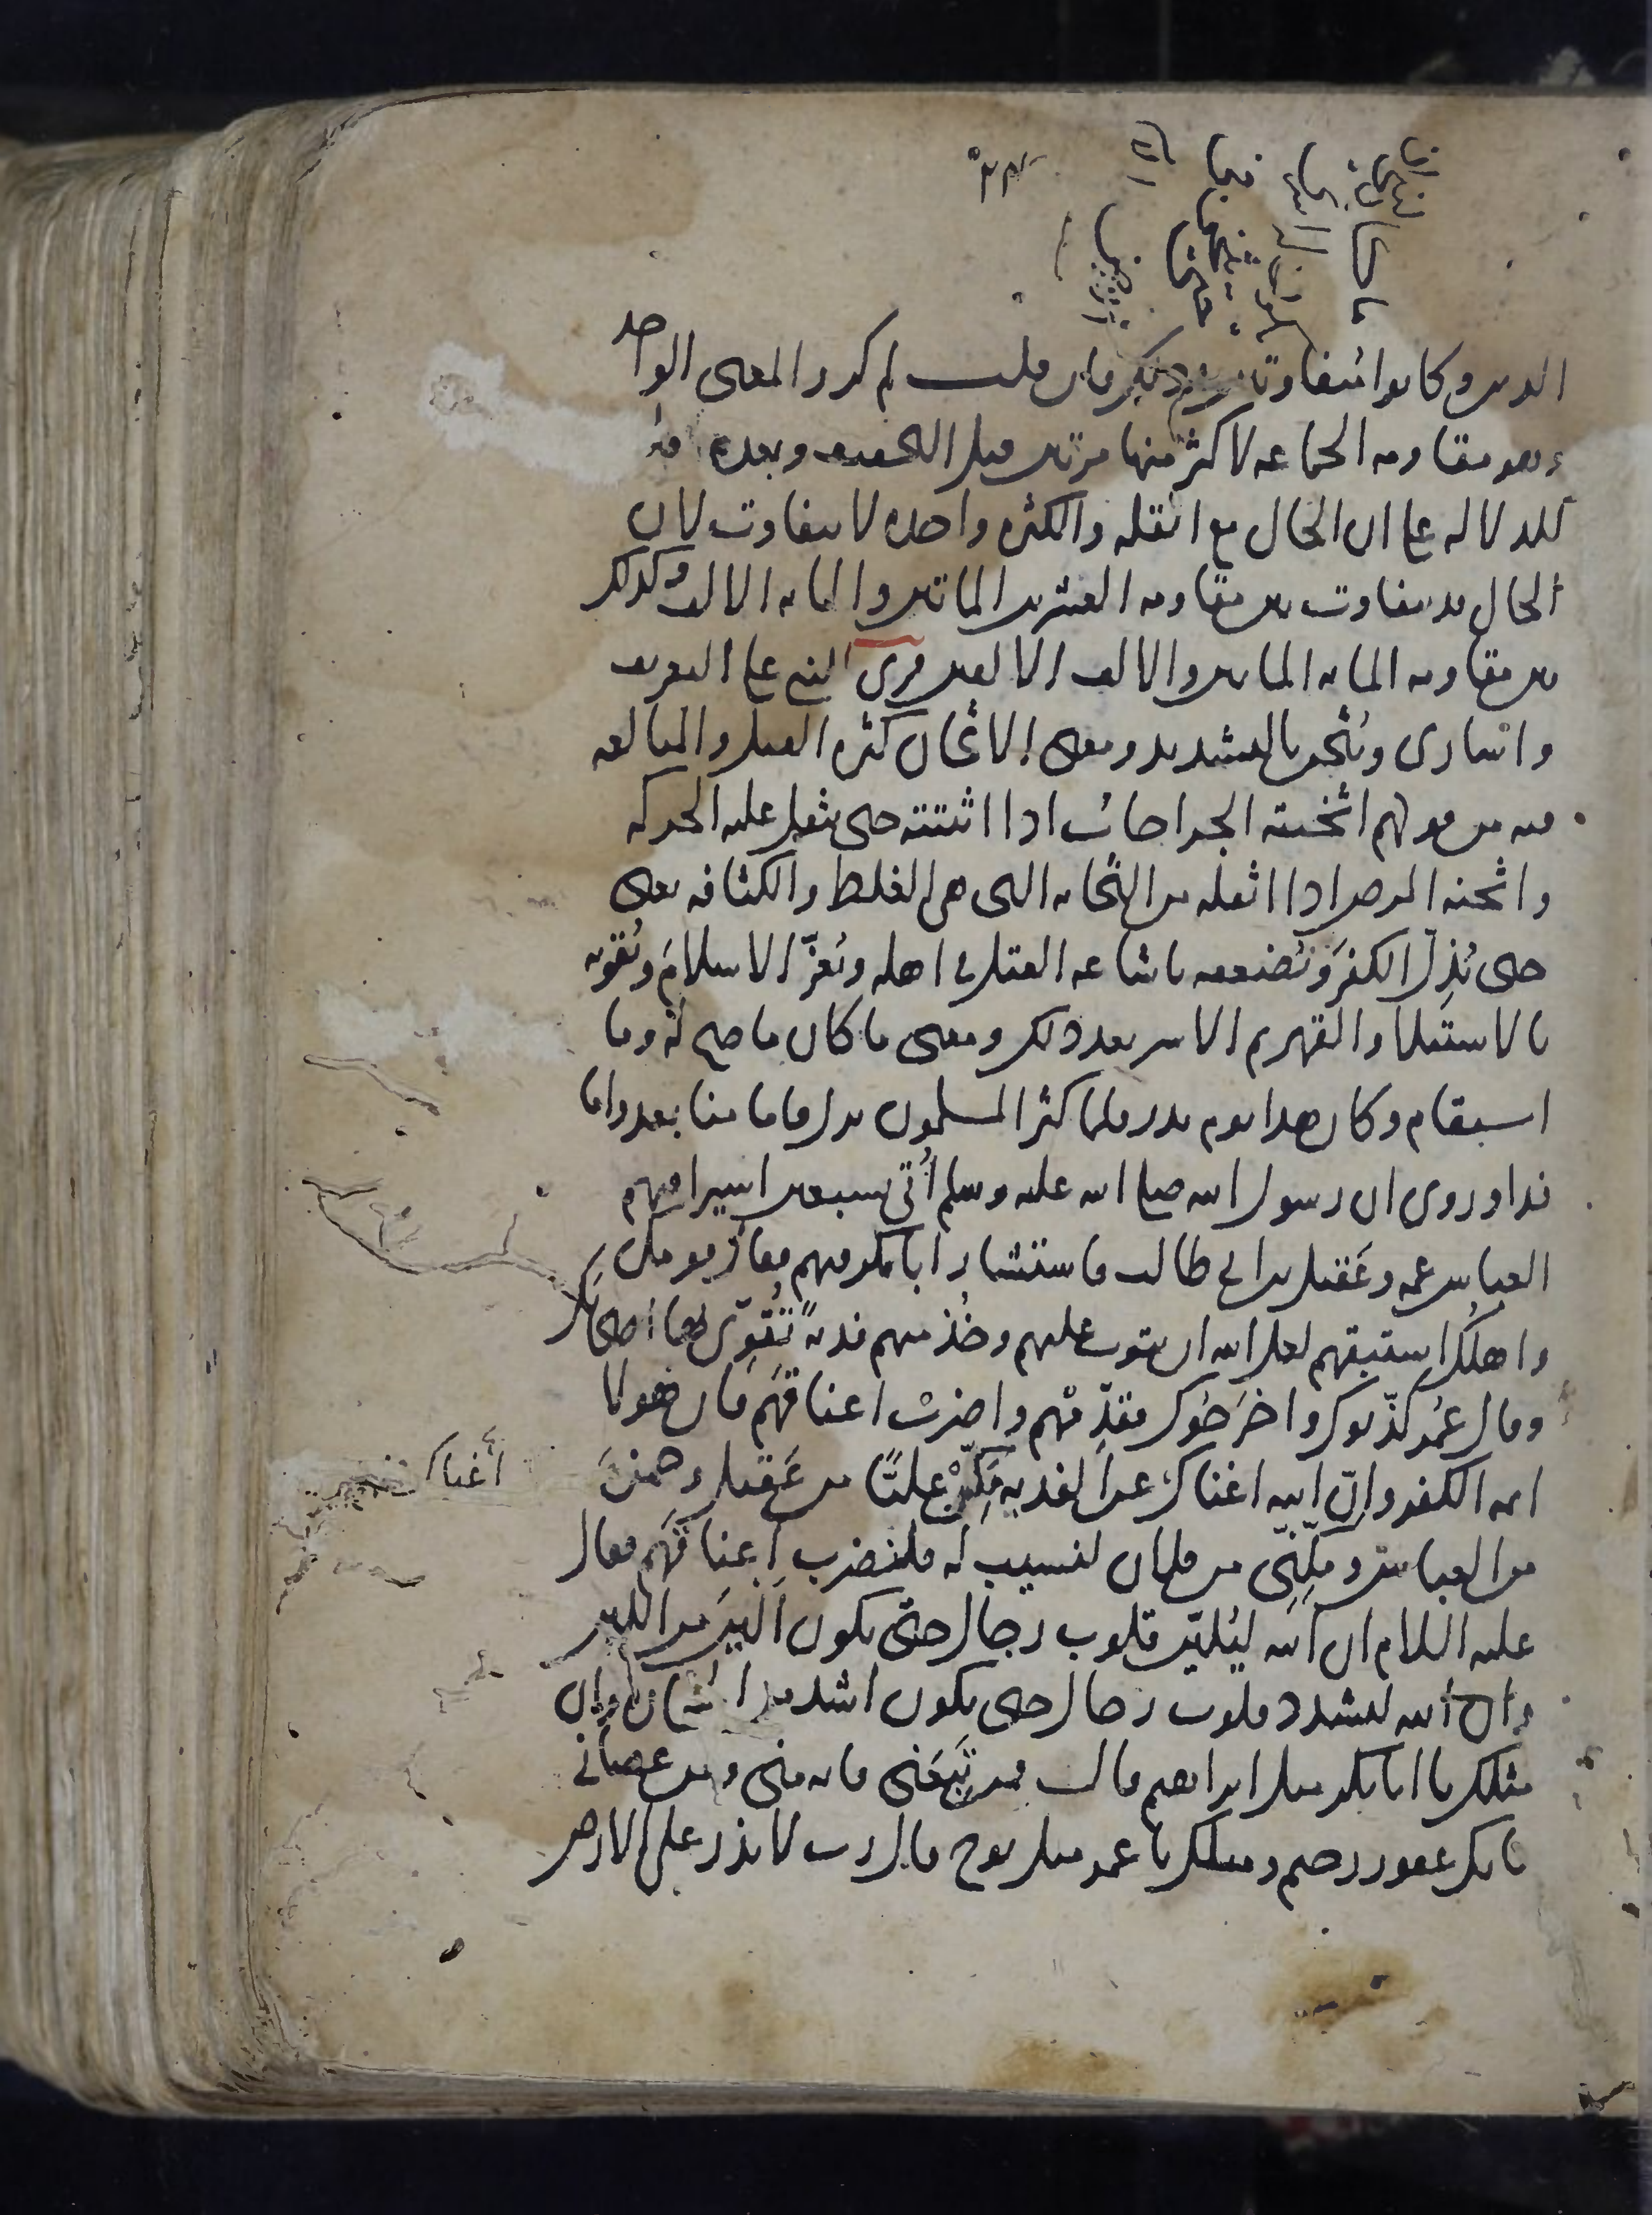 الدين وكانوا متفاوتين في ذلك فان قلت لم كرر المعنى الواحد
وهو مقاومة الجماعة لاكثر منها مرتين قبل التخفيف وبعده قلت
للدلالة على ان الحال مع القلة والكثرة واحدة لا يتفاوت لان
الحال قد يتفاوت بين مقاومة العشرين الماتين والماية الالف وكذلك
بين مقاومة الماية الماتين والالف الالفين قرى للنبي على التعريف
واسارى ويثخن بالتشديد ومعنى الاثخان كثرة القتل والمبالغة
فيه من قولهم اثخنته الجراحات اذا اثبتته حتى يثقل عليه الحركة
واثخنه المرض اذا اثقله من الثخانة التى هى الغلظ والكثافة يعنى
حتى يُذِلّ الكفرَ ويُضعفه باشاعة القتل فى اهله ويُعزّ الاسلامَ ويُقويه
بالاستيلا والقهر ثم الاسر بعد ذلك ومعنى ما كان ما صح له وما
استقام وكان هذا يوم بدر فلما كثر المسلمون نزل فاما منا بعد واما
فدا وروى ان رسول الله صلى الله عليه وسلم أُتى بسبعين اسيرا فيهم
العباس عمه وعَقيل بن ابى طالب فاستشار ابا بكر فيهم فقال قومك
واهلك استبقهم لعل الله ان يتوب عليهم وخُذ منهم فديةً تُقوّى بها اصحابك
وقال عُمر كذّبوك واخرَجُوك فقدِّمْهم واضربْ اعناقهَم فان هولا
ايمة الكفر وانّ الله اغناك عن الفدية مَكِّنْ عليًّا من عَقيل وحمزةَ
من العباس ومكِّنّى من فلان لنسيب له فلنضرب اعناقَهم فقال
عليه السلام ان الله ليُليّن قلوب رجال حتى يكون اَليَنَ من اللبن
وان الله ليشدد قلوب رجال حتى يكون اشد من الحجارة وان
مثلك يا ابا بكر مثل ابراهيم قال فمن تَبِعَنى فانه منى ومن عصانى
فانك غفور رحيم ومثلك يا عمر مثل نوح قال رب لا تذر على الارض
أغناك